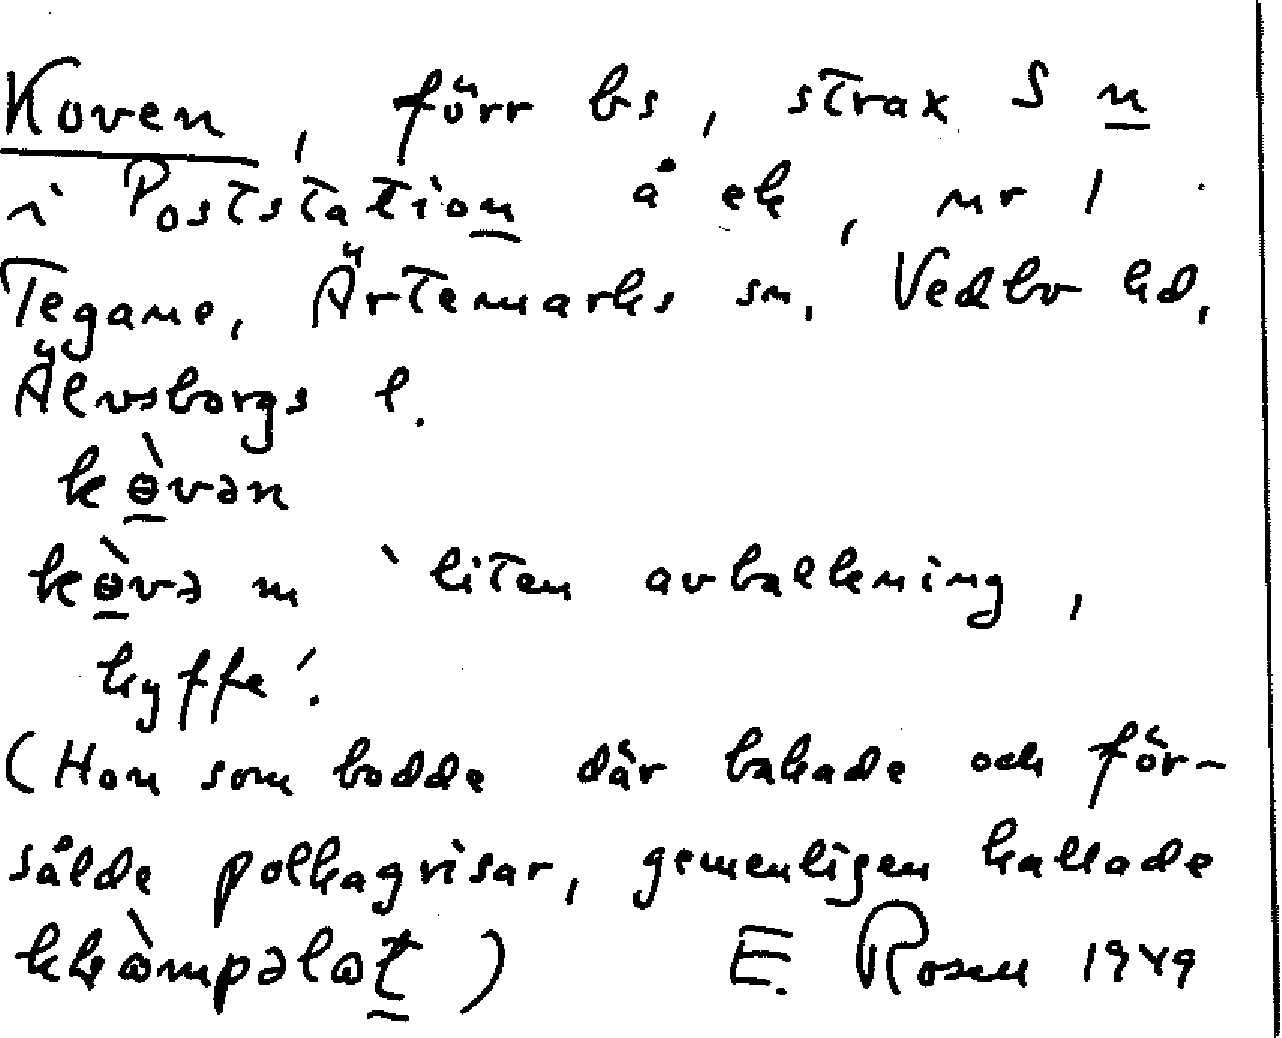 Koven, förr bs, strax S n
i Poststation å ek, nr 1
Tegane, Ärtemarks sn, Vedbo hd,
Älvsborgs l.
kɵ̀vən
kɵ̀və m ‵liten avbalkning,
kyffe′.
(Hon som bodde där bakade och för-
sålde polkagrisar, gemenligen kallade
E. Rosen 1949